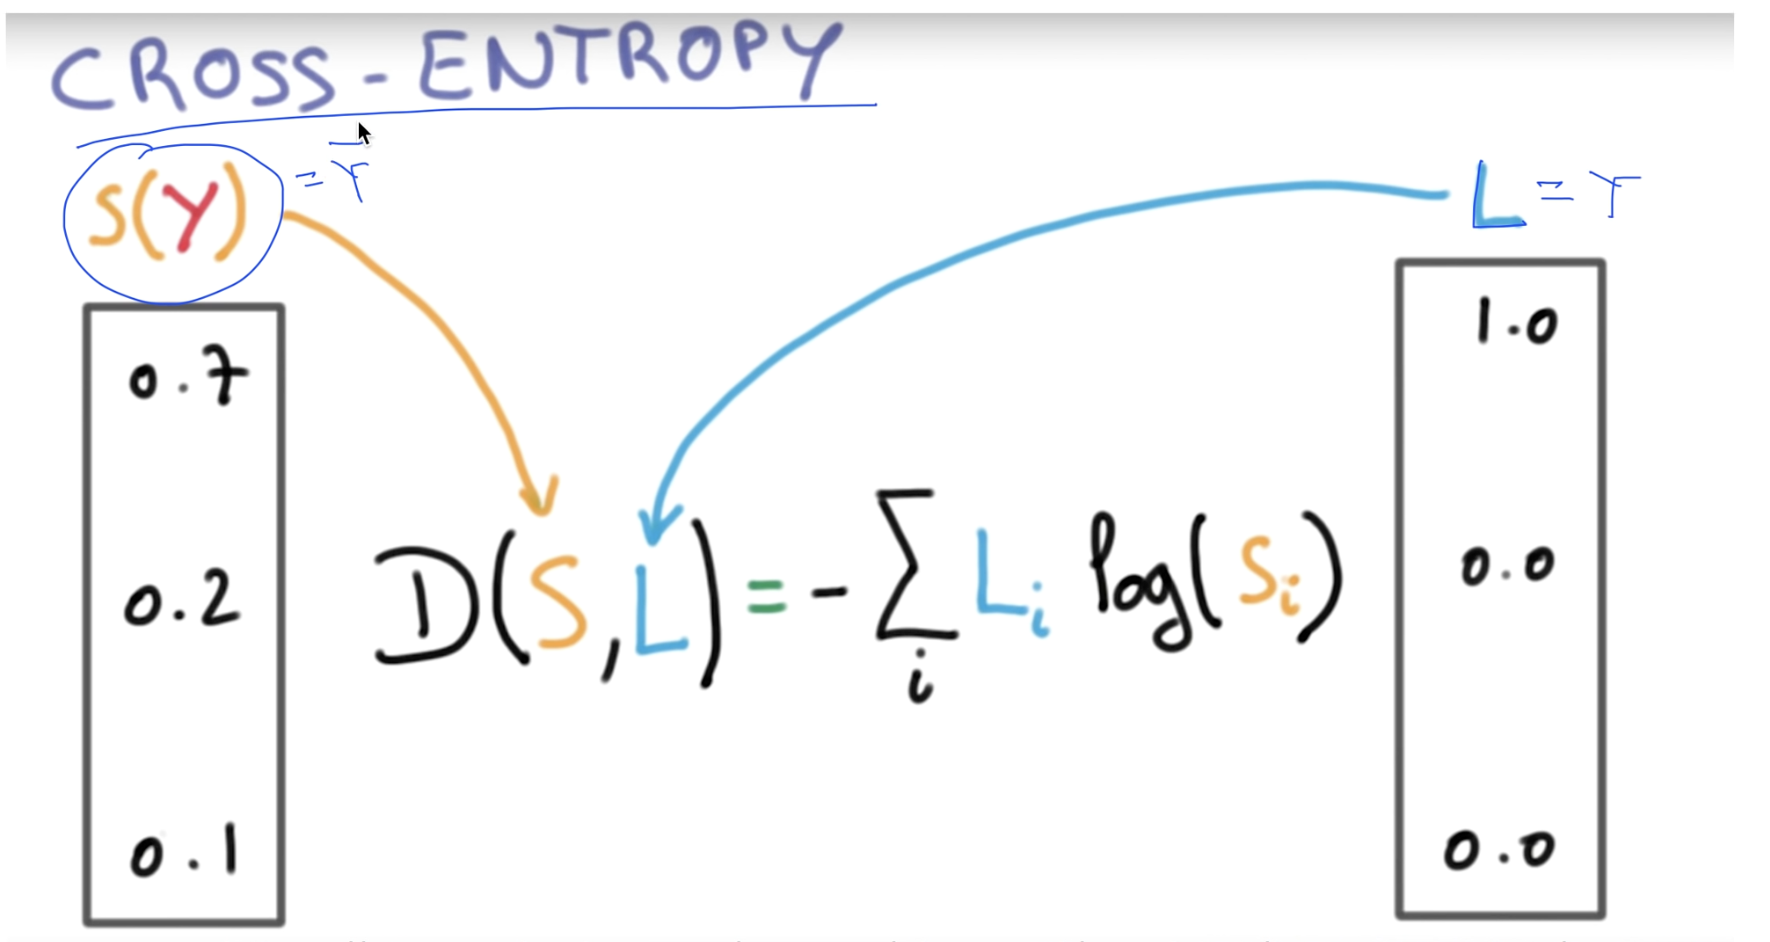 CROSS-ENTROPY
S(Y) = Y̅
L = Y
0.7
0.2
0.1
D(S,L) = -∑ᵢ Lᵢ log(Sᵢ)
1.0
0.0
0.0